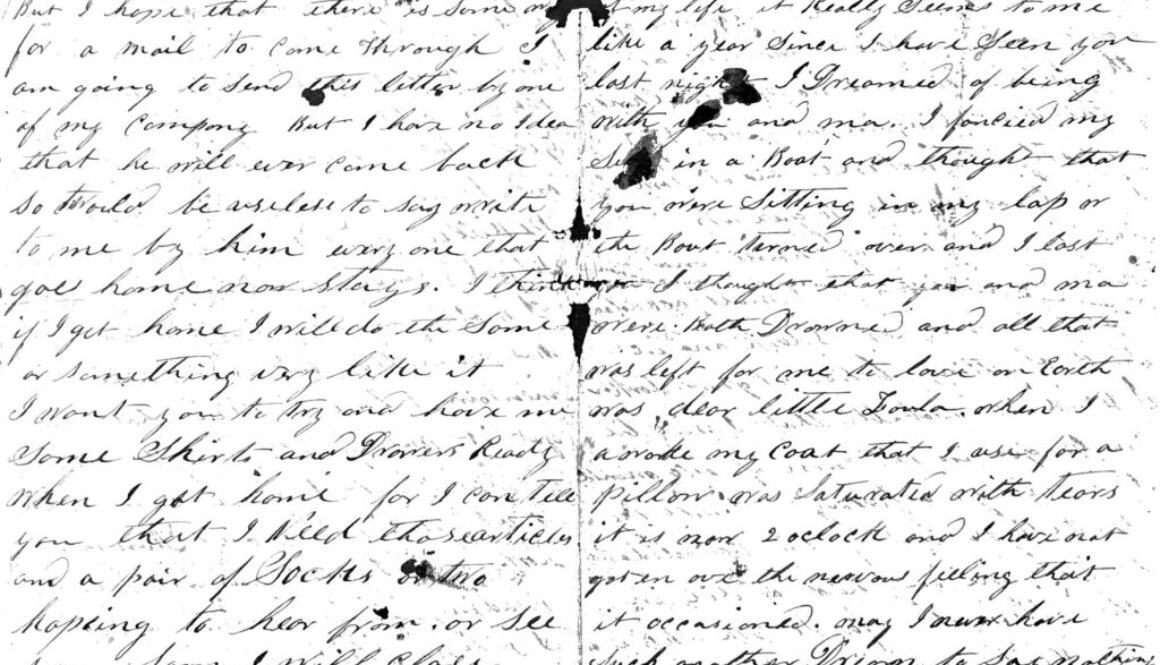 But I hope that there is some
for a mail to come through I
am going to send this letter by one
of my Company But I have no Idea
that he will ever come back
so would be useless to say write
to me by him every one that
goes home now stays. I think
if I get home I will do the same
or something very like it
I want you to try and have me
some Shirts and Drowers Ready
when I get home for I can tell
you that I Need those articles
and a pair of Socks or two
hopeing to hear from. or see
soon I will close
of my life it Really Seems to me
like a year since I have Seen you
last night I Dreamed of being
with you and ma. I fancied my
self in a Boat and thought that
you were Sitting in my lap or
the Boat turned over and I lost
I thought that you and ma
were Both Drowned and all that
was left for me to love on Earth
was dear little Loula. when I
awoke my Coat that I use for a
pillow was Saturated with tears
it is now 2 oclock and I have not
goten over the nervous feeling that
it occasioned. may I never have
such another Dream to Say nothing